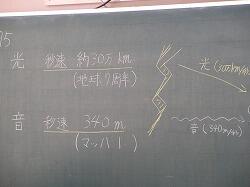 光 秒速 約30万km
(地球7周半)
音 秒速 340m
(マッハ1)
光
音 (340m/